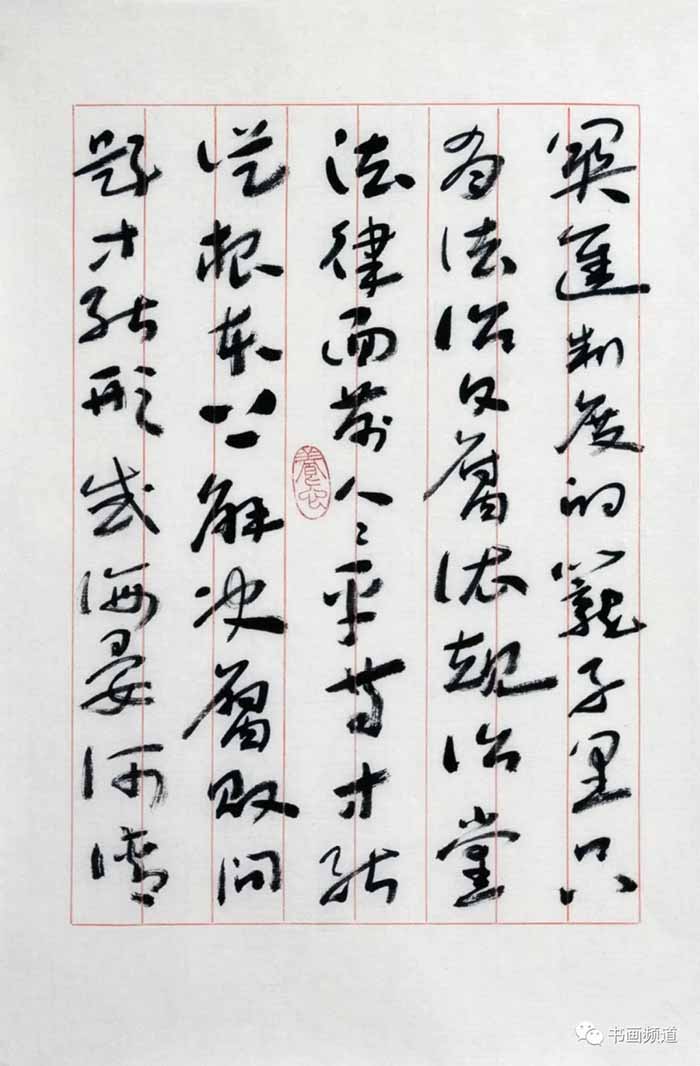 关进制度的笼子里只
有法治反腐依规治党
法律面前人人平等才能
从根本上解决腐败问
题才能形成海晏河清
书画频道